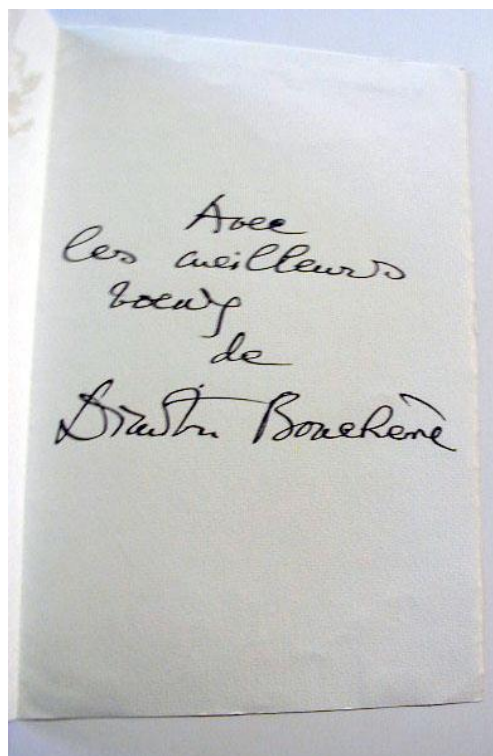 Avec
les meilleurs
voeux
de
Dimitri Bouchène